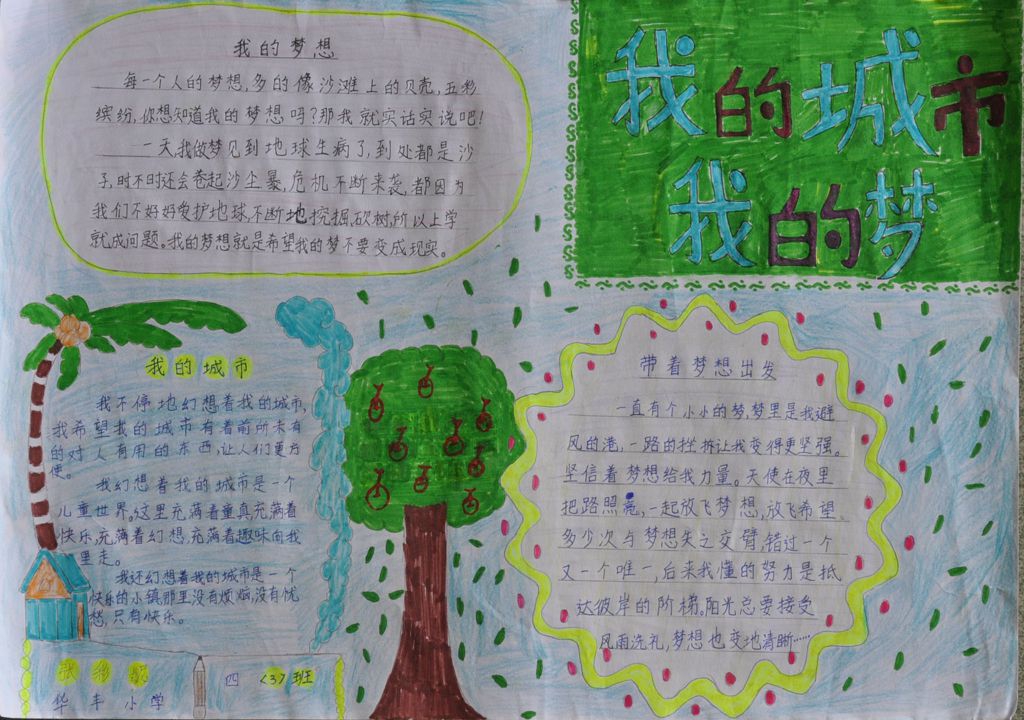 我的城市
我的梦
我的梦想
每一个人的梦想,多的像沙滩上的贝壳,五彩
缤纷,你想知道我的梦想吗?那我就实话实说吧!
一天我做梦见到地球生病了,到处都是沙
子,时不时还会卷起沙尘暴,危机不断来袭,都因为
我们不好好爱护地球,不断地挖掘,砍树,所以上学
就成问题。我的梦想就是希望我的梦不要变成现实。
我的城市
我不停地幻想着我的城市,
我希望我的城市有着前所未有
的对人有用的东西,让人们更方
便。
我幻想着我的城市是一个
儿童世界。这里充满着童真,充满着
快乐,充满着幻想,充满着趣味向我
里走。
我还幻想着我的城市是一个
快乐的小镇,那里没有烦恼,没有忧
愁,只有快乐。
带着梦想出发
一直有个小小的梦,梦里是我避
风的港,一路的挫折让我变得更坚强。
坚信着梦想给我力量。天使在夜里
把路照亮,一起放飞梦想,放飞希望。
多少次与梦想失之交臂,错过一个
又一个唯一,后来我懂的努力是抵
达彼岸的阶梯。阳光总要接受
风雨洗礼,梦想也变地清晰……
四〈3〉班
华丰小学